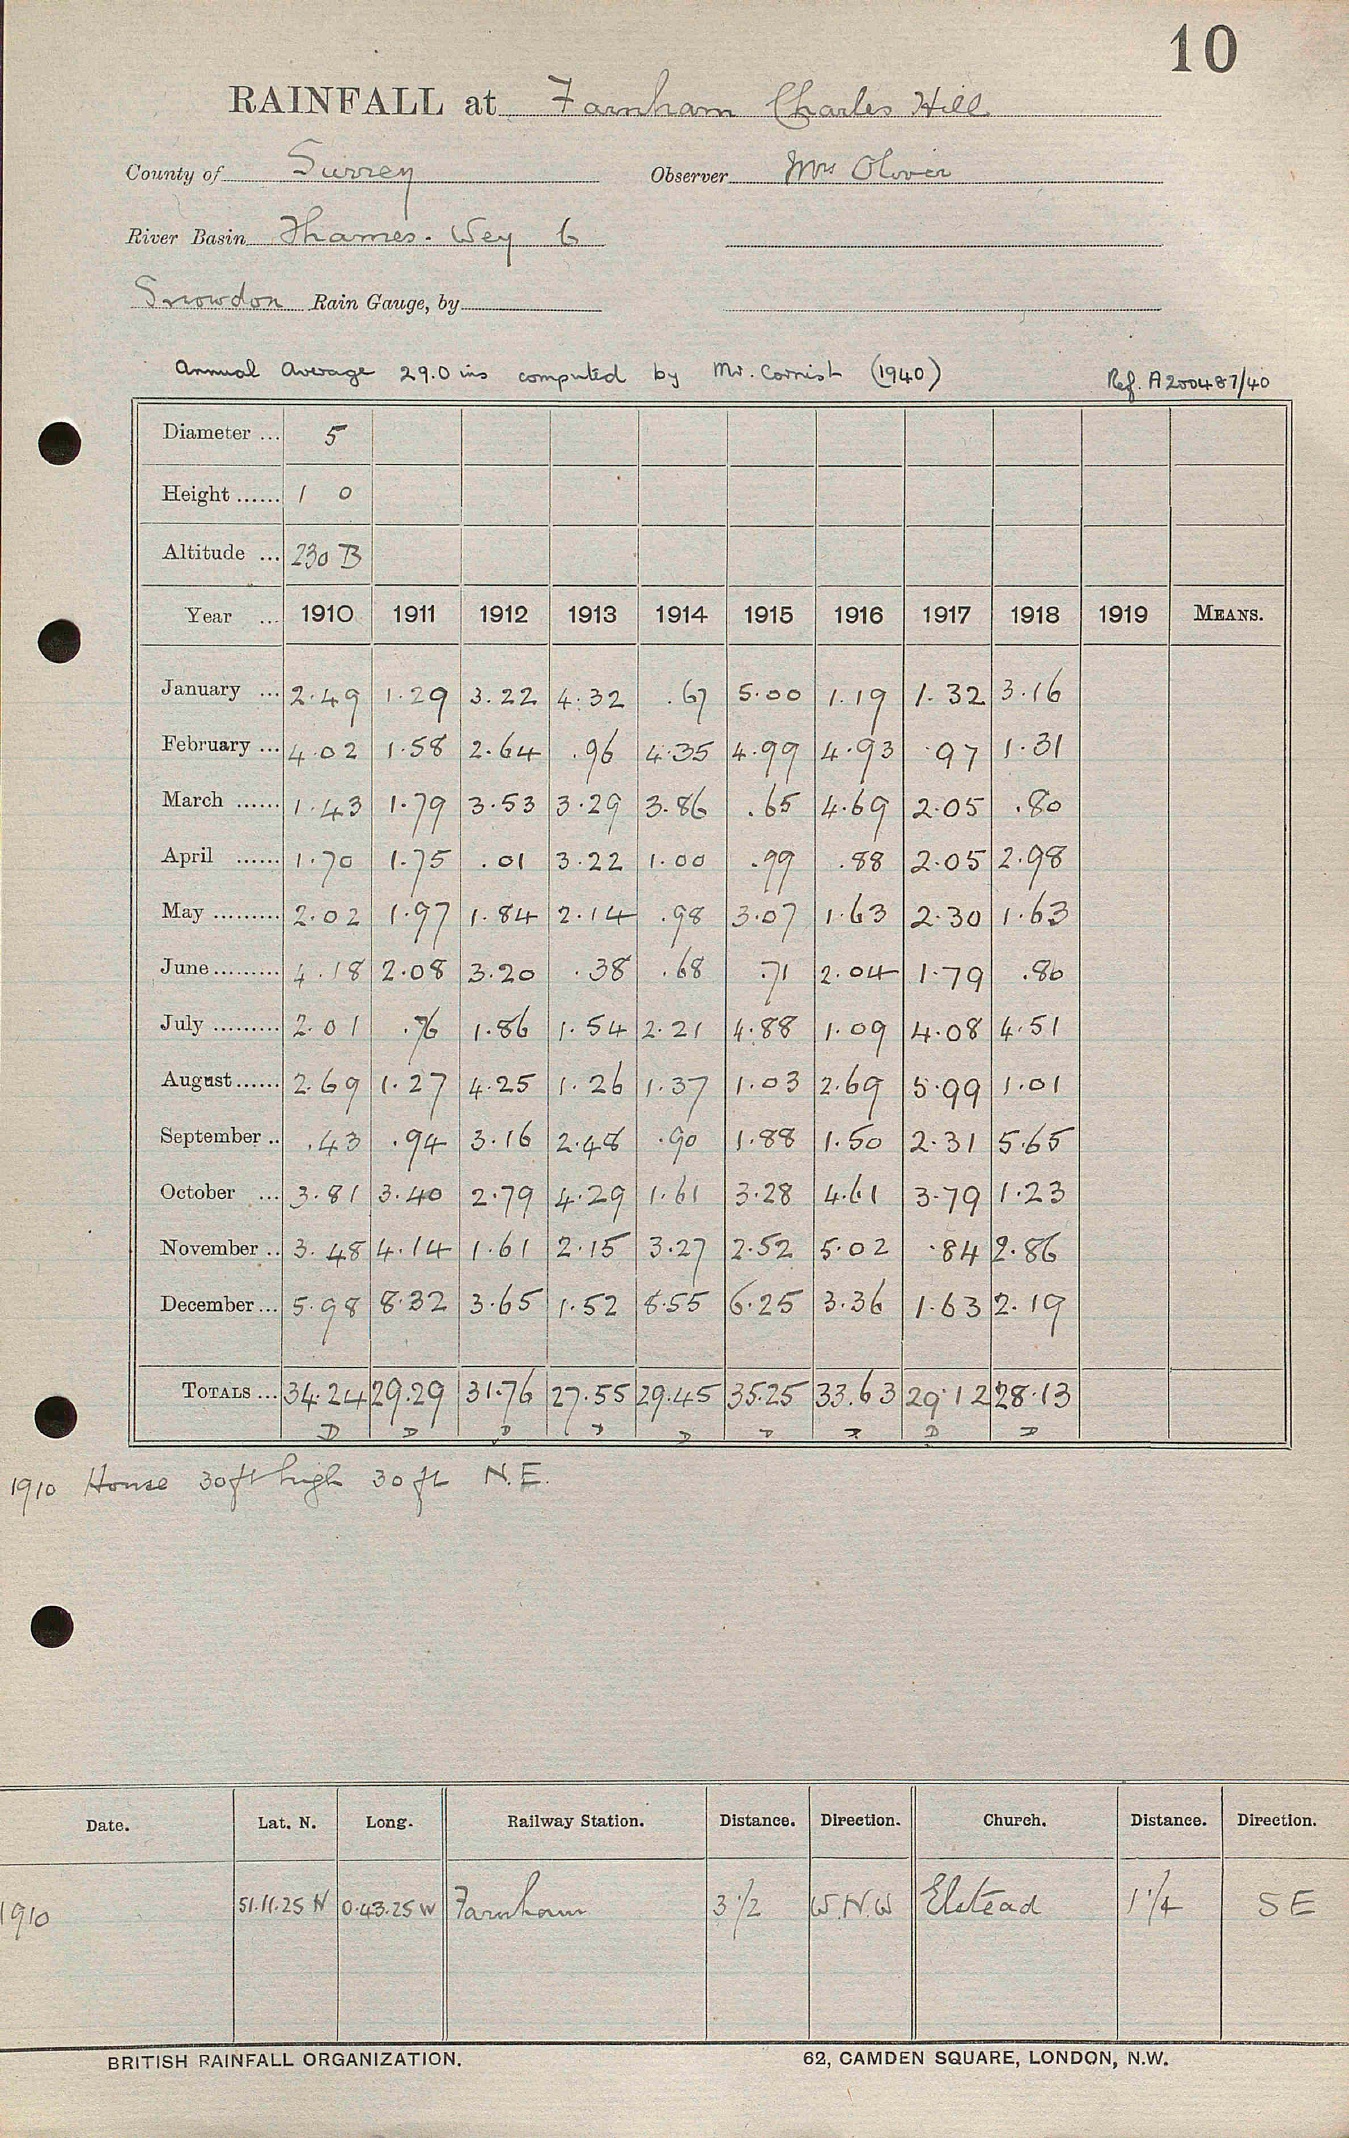 10
RAINFALL at Farnham Charles Hill
County of Surrey Observer Mrs Oliver
River Basin Thames. Wey 6
Snowdon Rain Gauge, by
Annual Average 29.0 ins computed by Mr. Cornish (1940) Ref. A200487/40
Diameter ... 5
Height ...... 1 0
Altitude ... 230 B
Year ... 1910 1911 1912 1913 1914 1915 1916 1917 1918 1919 MEANS.
January ... 2.49 1.29 3.22 4.32 .67 5.00 1.19 1.32 3.16
February ... 4.02 1.58 2.64 .96 4.35 4.99 4.93 .97 1.31
March ...... 1.43 1.79 3.53 3.29 3.86 .65 4.69 2.05 .80
April ...... 1.70 1.75 .01 3.22 1.00 .99 .88 2.05 2.98
May ......... 2.02 1.97 1.84 2.14 .98 3.07 1.63 2.30 1.63
June ......... 4.18 2.08 3.20 .38 .68 .71 2.04 1.79 .80
July ......... 2.01 .76 1.86 1.54 2.21 4.88 1.09 4.08 4.51
August ...... 2.69 1.27 4.25 1.26 1.37 1.03 2.69 5.99 1.01
September .. .43 .94 3.16 2.48 .90 1.88 1.50 2.31 5.65
October ... 3.81 3.40 2.79 4.29 1.61 3.28 4.61 3.79 1.23
November .. 3.48 4.14 1.61 2.15 3.27 2.52 5.02 .84 2.86
December ... 5.98 8.32 3.65 1.52 8.55 6.25 3.36 1.63 2.19
TOTALS ... 34.24 29.29 31.76 27.55 29.45 35.25 33.63 29.12 28.13
D D D D D D D D D
1910 House 30ft high 30 ft N.E.
Date. Lat. N. Long. Railway Station. Distance. Direction. Church. Distance. Direction.
1910 51.11.25 N 0.43.25 W Farnham 3 1/2 W.N.W Elstead 1 1/4 SE
BRITISH RAINFALL ORGANIZATION. 62, CAMDEN SQUARE, LONDON, N.W.